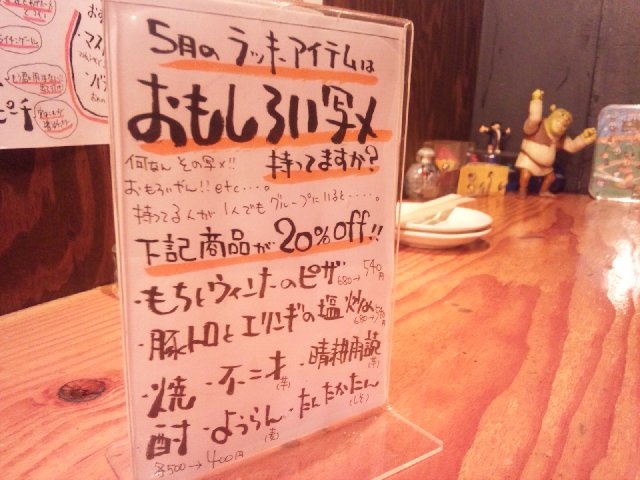 5月のラッキーアイテムは
おもしろい写メ
持ってますか?
何なん その写メ!!
おもろいやん!! etc・・・。
持ってる人が1人でもグループにいると・・・・。
下記商品が20%off!!
・もちとウィンナーのピザ 680→540円
・豚トロとエリンギの塩炒め 680→540円
焼酎
・不二才(芋) ・晴耕雨読(芋)
・ようらん(麦) ・たんたかたん(しそ)
各500→400円